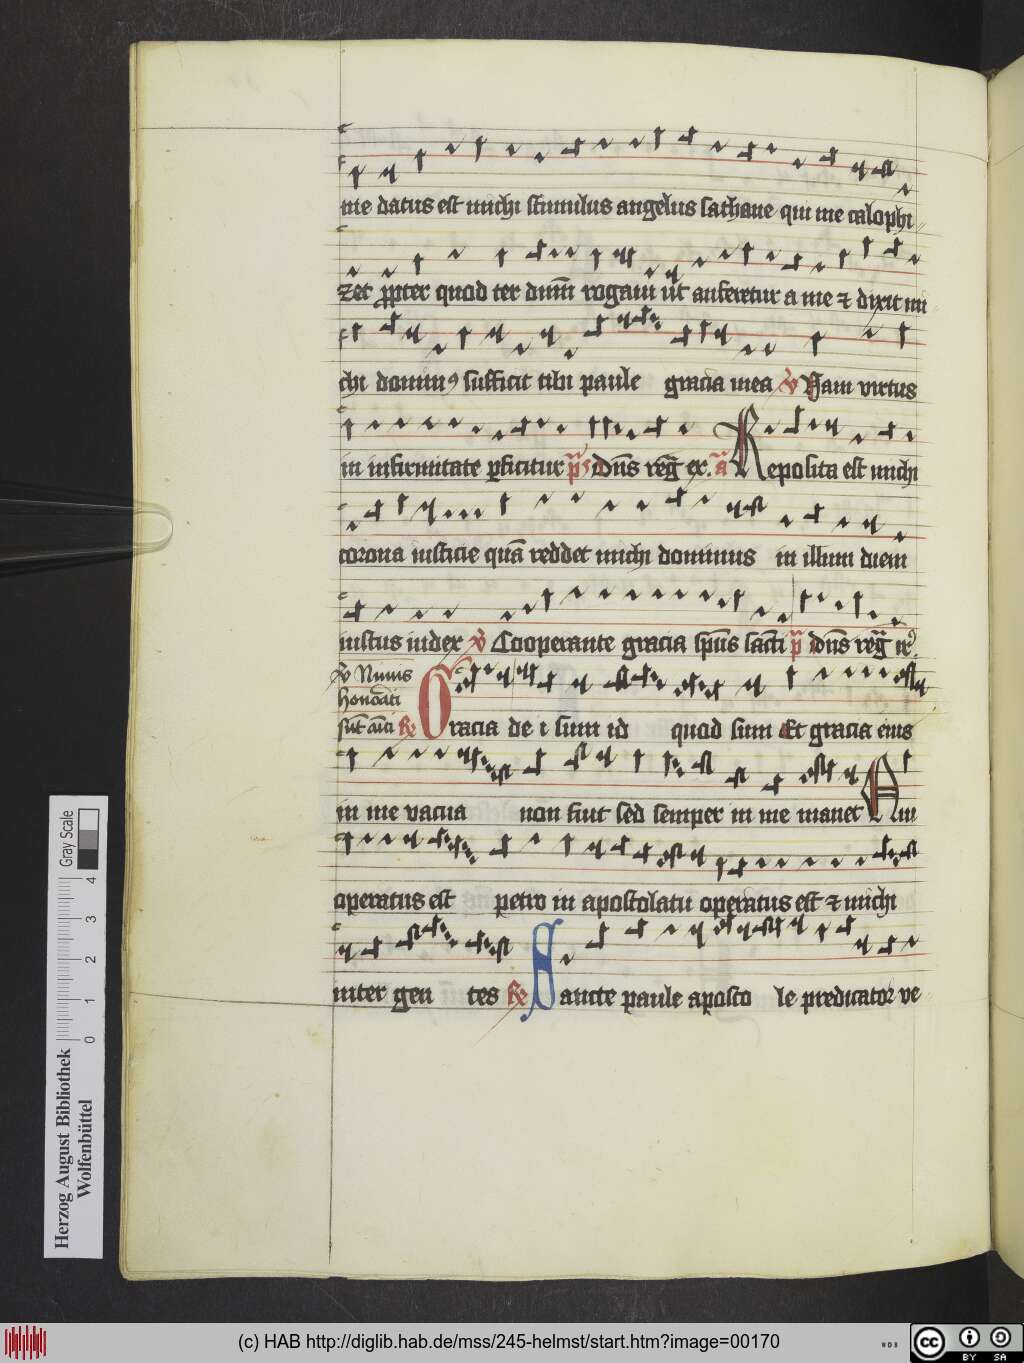 me datus est michi stimulus angelus sathane qui me calophi
zet propter quod ter dominum rogaui ut auferretur a me ⁊ dixit mi
chi dominꝰ sufficit tibi paule gracia mea V̄ Nam virtus
in infirmitate perficitur p̄s Dn̄s reḡ ex. a Reposita est michi
corona iusticie quā reddet michi dominus in illum diem
iustus iudex V̄ Cooperante gracia sp̄us sancti p̄ Dn̄s reḡ
V̄ Nimis
honorati
sūt
Gracia de i sum id quod sum Et gracia eius
in me vacua non fuit sed semper in me manet Qui
operatus est petro in apostolatu operatus est ⁊ michi
inter gen tes R̄ Sancte paule aposto le predicator ve
Herzog August Bibliothek
Wolfenbüttel
Gray Scale
0 1 2 3 4
(c) HAB http://diglib.hab.de/mss/245-helmst/start.htm?image=00170
WDB
cc BY SA